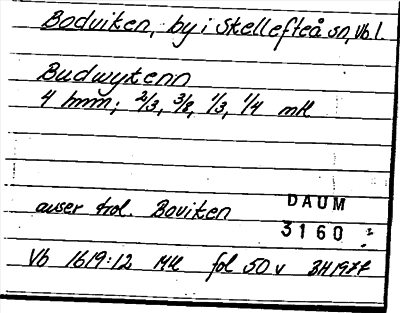 Bodviken, by i Skellefteå sn, Vb. l.
Budwykenn
4 hmm; 2/3, 3/8, 1/3, 1/4 mk
avser trol. Boviken
DAUM
3160
Vb 1619:12 Mk fol 50 v 3H197f